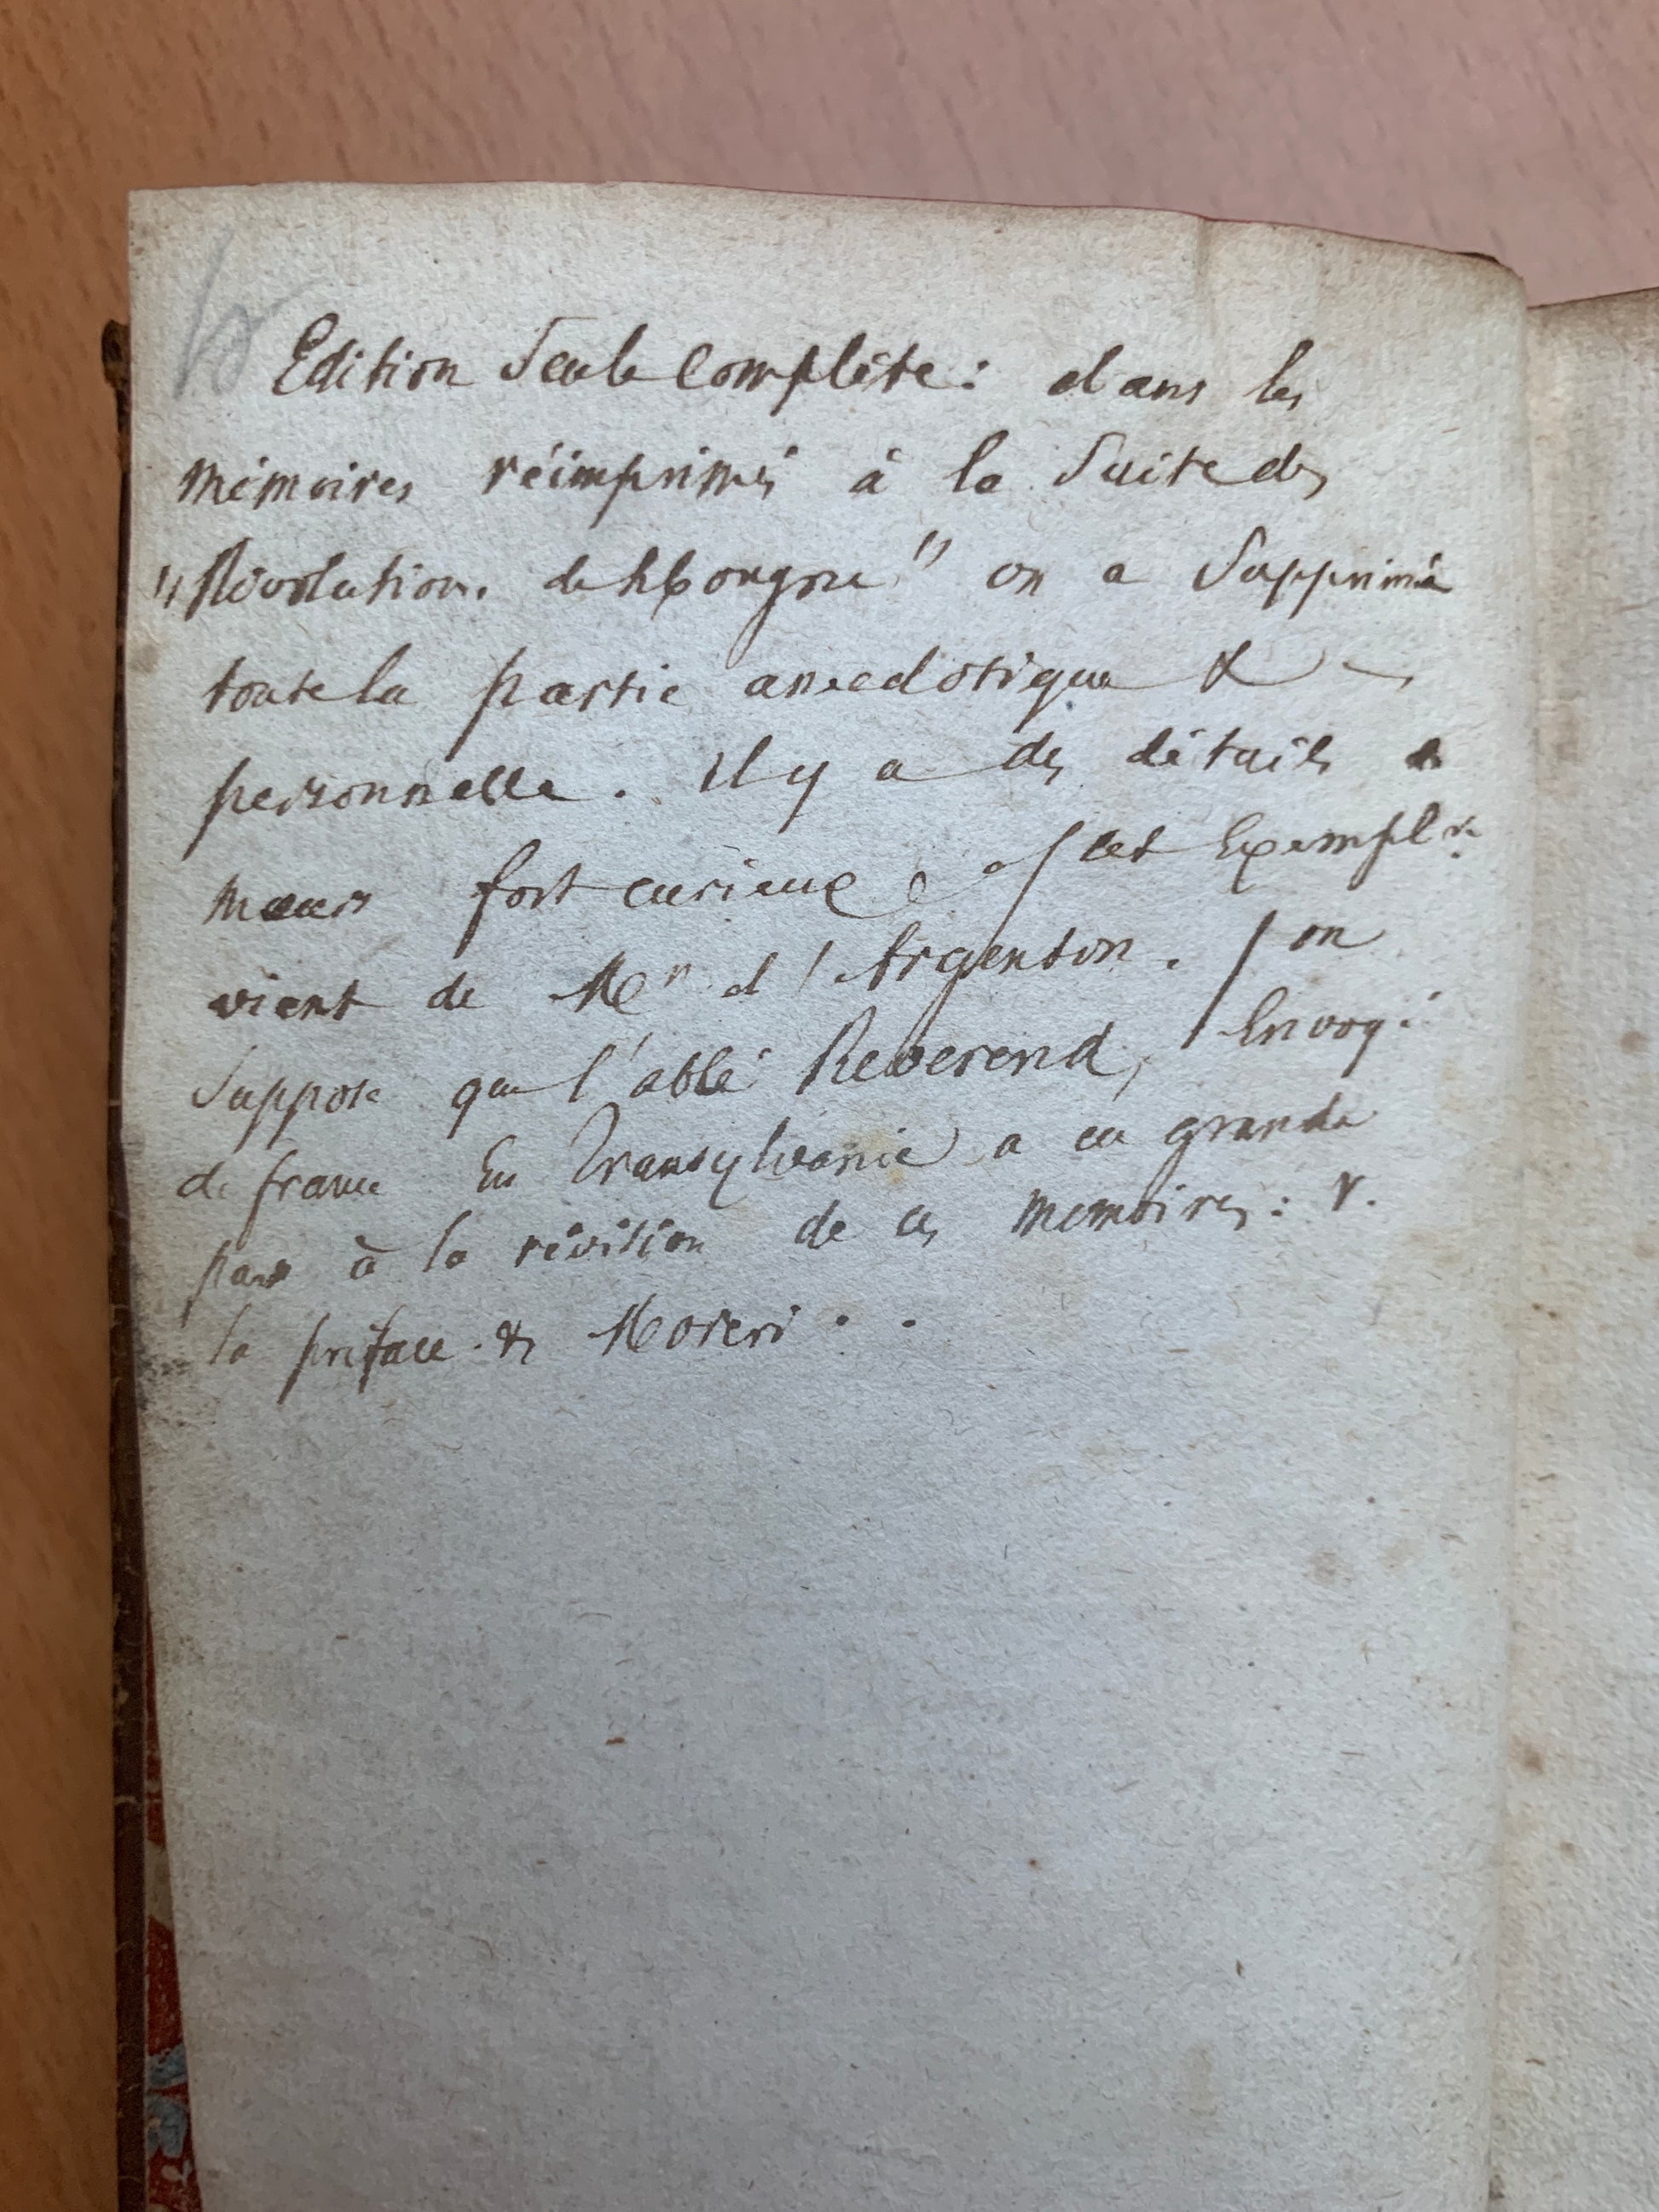 Edition Seule Complète : dans les
mémoires réimprimés à la Suite des
"Révolutions de hongrie" on a Supprimé
toute la partie anecdotique &
personnelle . il y a des détails de
mœurs fort curieux / cet Exemplre
vient de Mr d'Argenson . / on
Suppose que l'abbé Reverend, Envoyé
de france En Transylvanie a eu grande
part à la révision de ces memoires : v.
la préface & Moreri . .